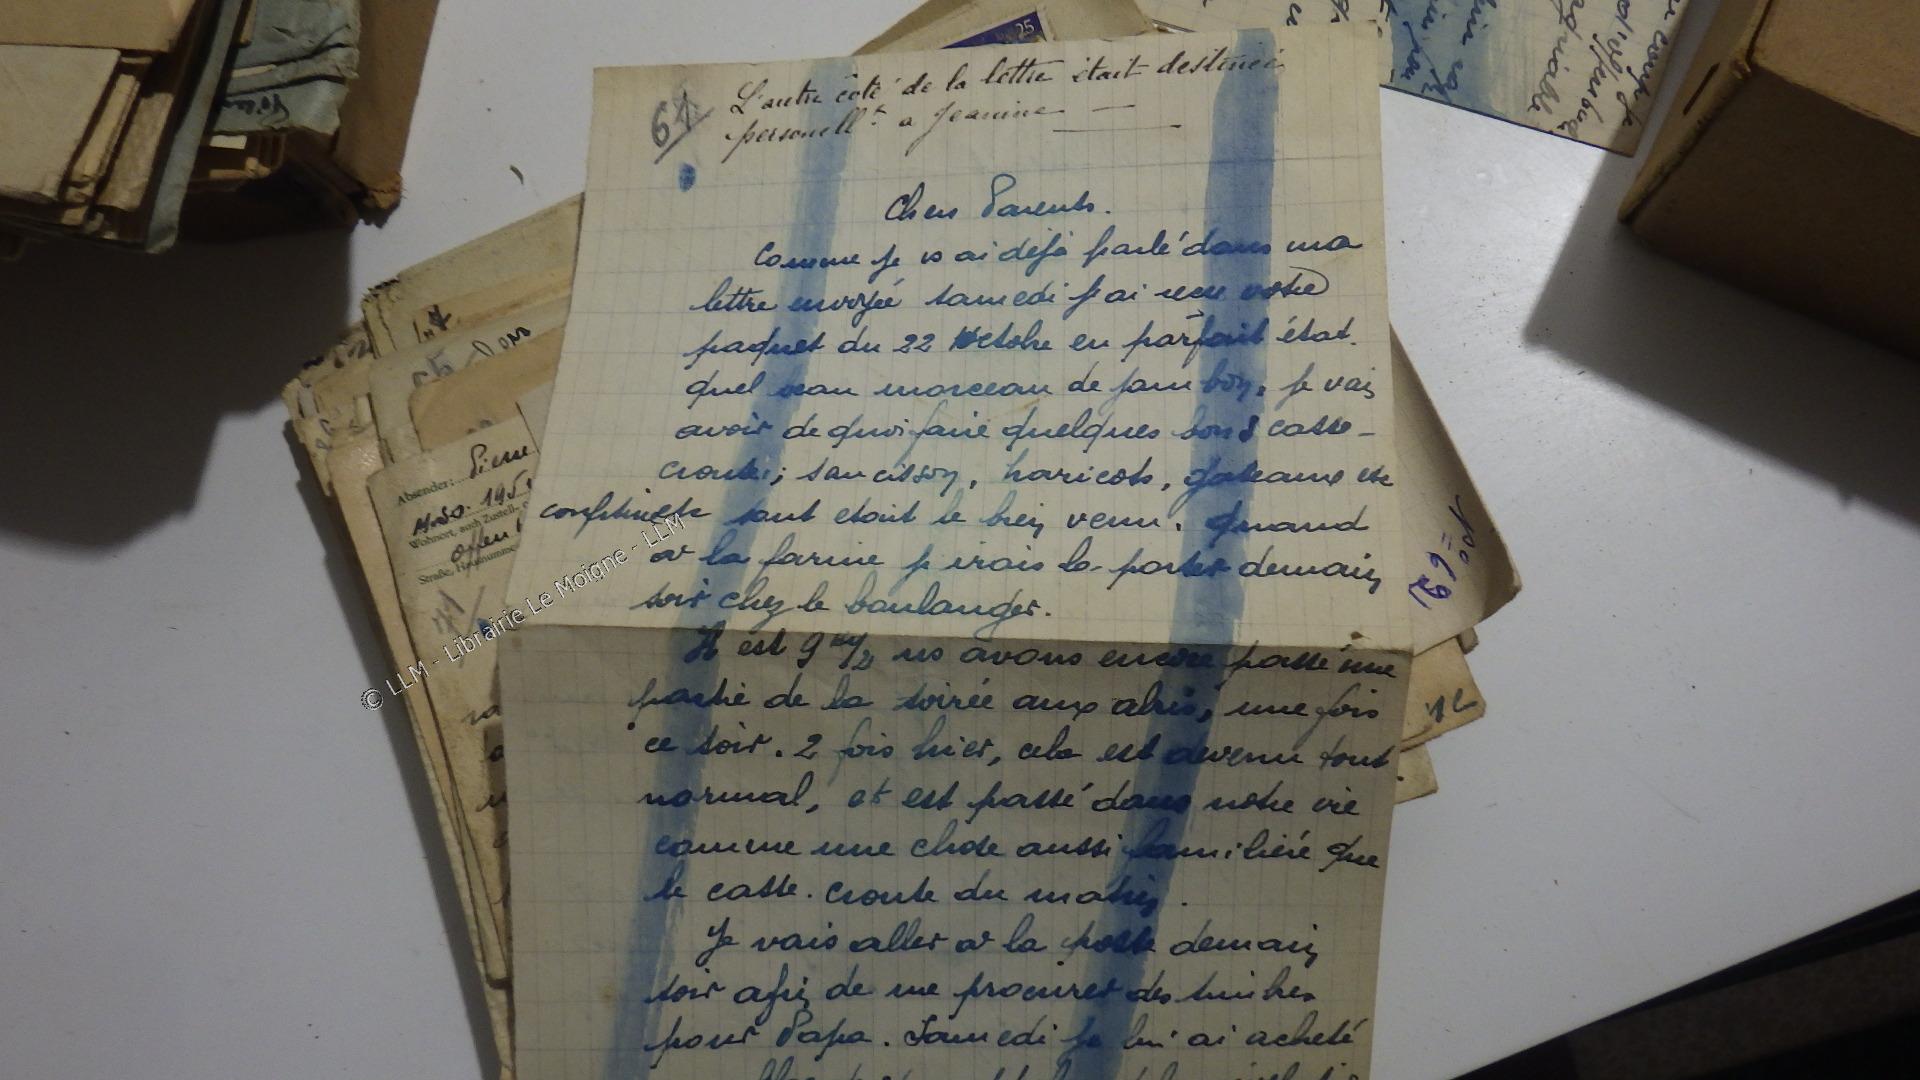 64
L'autre côté de la lettre était destinée
personellt a Jeanine
Chers Parents.
Comme je vs ai déjà parlé dans ma
lettre envoyée samedi j'ai reçu votre
paquet du 22 Octobre en parfait état.
quel beau morceau de jambon, je vais
avoir de quoi faire quelques bons casse-
croute; saucisson, haricots, gateaux et
confiture tout etait le bien venu. Quand
a la farine je irais la porter demain
soir chez le boulanger.
Il est 9 1/2 ns avons encore passé une
partie de la soirée aux abris, une fois
ce soir. 2 fois hier, cela est devenu tout
normal, et est passé dans notre vie
comme une chose aussi familière que
le casse-croute du matin.
Je vais aller a la poste demain
soir afin de me procurer des timbres
pour Papa. Samedi je lui ai acheté
© LLM - Librairie Le Moigne - LLM
Absender: Pierre
Wohnort, auch Zustell-
Straße, Hausnummer
71
25
No = 69